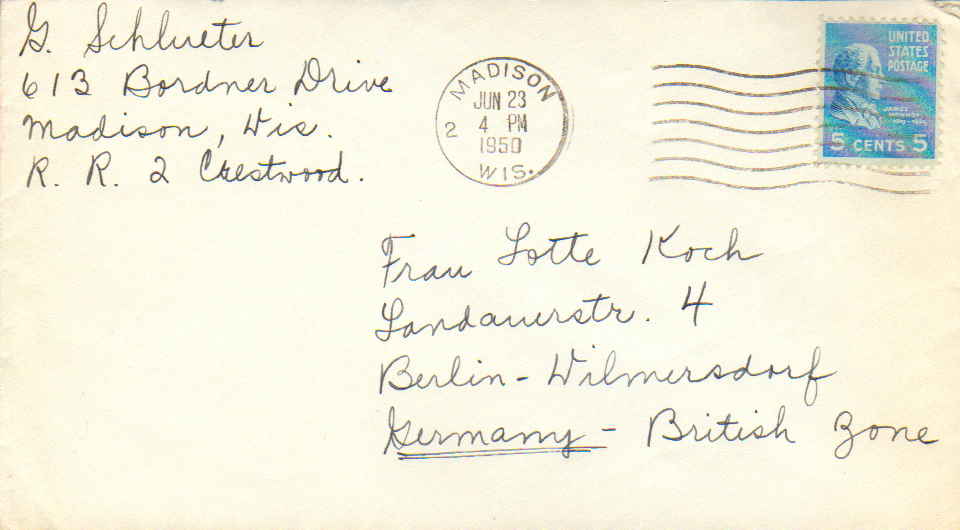 G. Schlueter
613 Bordner Drive
Madison, Wis.
R. R. 2 Crestwood.
MADISON
JUN 23
2 4 PM
1950
WIS.
UNITED
STATES
POSTAGE
JAMES
MONROE
5 CENTS 5
Frau Lotte Koch
Landauerstr. 4
Berlin - Wilmersdorf
Germany - British Zone